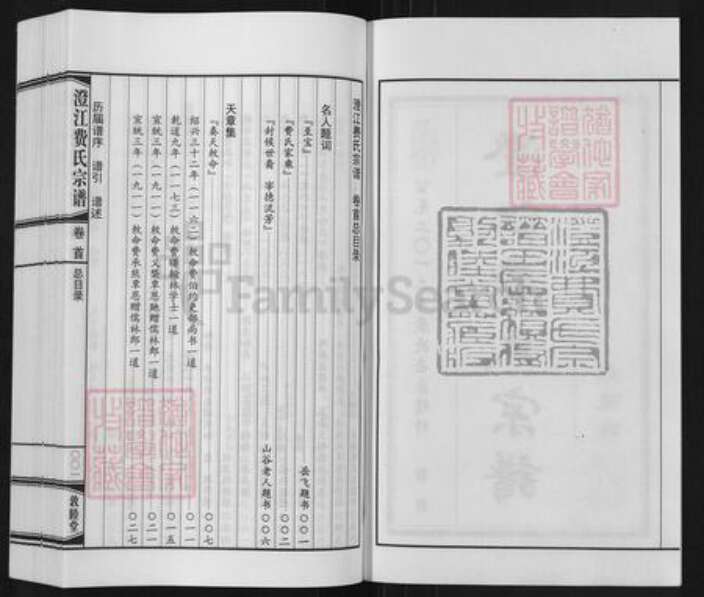 澄江费氏宗谱 卷首总目录
名人题词
『至宝』 岳飞题书 〇〇一
『费氏家乘』 〇〇二
『封候世裔 宰德流芳』 山谷老人题书 〇〇六
天章集
『奏天敕命』 〇〇七
绍兴三十二年（一一六二）敕命费伯约吏部尚书一道 〇一一
乾道九年（一一七三）敕命费 翰林学士一道 〇一五
宣统三年（一九一一）敕命费义 覃恩驰赠儒林郎一道 〇二一
宣统三年（一九一一）敕命费承照覃恩赠儒林郎一道 〇二七
历届谱序 谱引 谱述
澄江费氏宗谱
卷首
总目录
〇〇一
敦睦堂
FamilySearch
宗谱